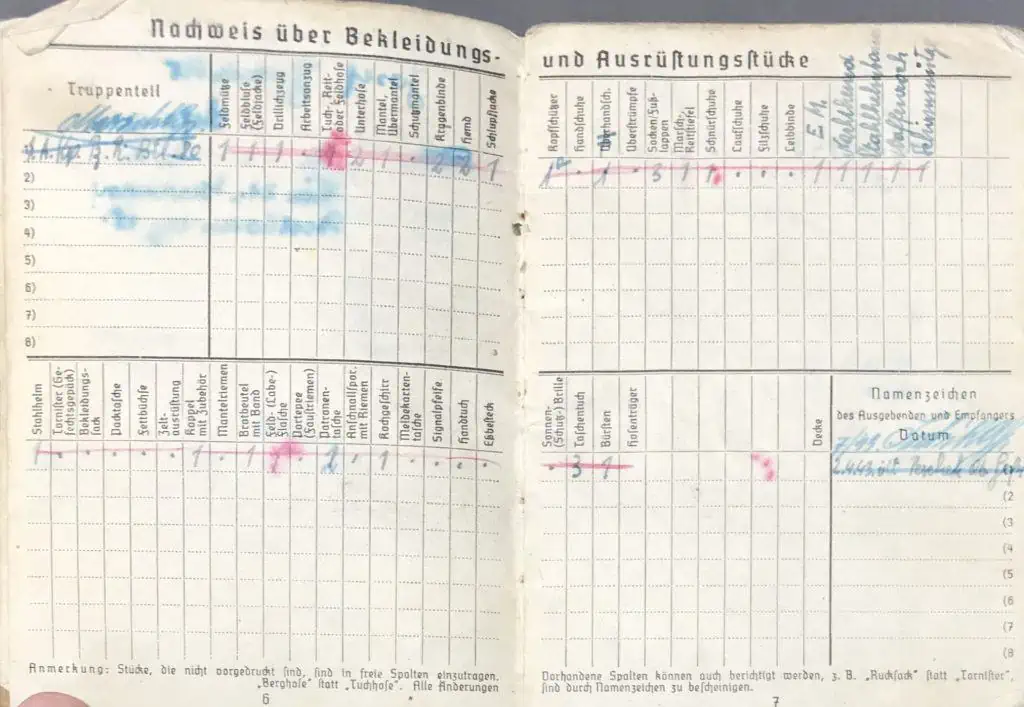 Nachweis über Bekleidungs-
Truppenteil
Feldmütze
Feldbluse (Feldjacke)
Drillichzeug
Arbeitsanzug
Tuch-, Reit- oder Feldhose
Unterhose
Mantel, Übermantel
Schutzmantel
Kragenbinde
Hemd
Schlupfjacke
1 1 1 . 1 2 1 . 2 2 1
2)
3)
4)
5)
6)
7)
8)
Stahlhelm
Tornister (Gefechtsgepäck)
Bekleidungssack
Packtasche
Fettbüchse
Zeltausrüstung
Koppel mit Zubehör
Mantelriemen
Brotbeutel mit Band
Feld- (Labe-) Flasche
Portepee (Faustriemen)
Patronentasche
Anschnallspor. mit Riemen
Kochgeschirr
Meldekartentasche
Signalpfeife
Handtuch
Eßbesteck
1 . . . . . 1 . 1 1 . 2 . 1 . . . .
Anmerkung: Stücke, die nicht vorgedruckt sind, sind in freie Spalten einzutragen.
„Berghose" statt „Tuchhose". Alle Änderungen
6
und Ausrüstungsstücke
Kopfschützer
Handschuhe
Überhandsch.
Überstrümpfe
Socken/Fußlappen
Marsch-, Reitstiefel
Schnürschuhe
Laufschuhe
Filzschuhe
Leibbinde
E.M.
1 . 1 . 3 1 1 . . . 1 1 1 1 1
Sonnen- (Schutz-) Brille
Taschentuch
Bürsten
Hosenträger
Decke
Namenzeichen
des Ausgebenden und Empfängers
Datum
. 3 1
2.4.43.
(2
(3
(4
(5
(6
(7
(8
Vorhandene Spalten können auch berichtigt werden, z. B. „Rucksack" statt „Tornister",
sind durch Namenzeichen zu bescheinigen.
7